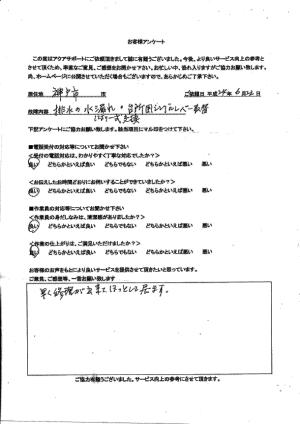 お客様アンケート
この度はアクアサポートにご依頼頂きまして誠に有難うございました。今後、より良いサービス向上の参考と
させて頂くため、率直なご意見、ご感想をお聞かせ下さい。お忙しい中、恐れ入りますがご協力お願い致します。
尚、ホームページに公開させていただく場合もございますので、あらかじめご了承下さい。
居住地 神戸市 ご依頼日 平成24年 6月22日
故障内容 排水の水漏れ・台所用シングルレバー取替
下記アンケートに協力お願い致します。該当項目にマル印をつけて下さい。
■電話受付の対応等についてお聞かせ下さい
<受付の電話対応は、わかりやすく丁寧な対応でしたか?>
良い どちらかといえば良い どちらかといえば悪い 悪い
<お伝えしたお時間どおりにお伺いできていましたでしょうか?>
良い どちらかといえば良い どちらかといえば悪い 悪い
■作業員の対応等についてお聞かせ下さい
<作業員の身だしなみは、清潔感がありましたか?>
良い どちらかといえば良い どちらかといえば悪い 悪い
<作業の仕上がりは、ご満足いただけましたか?>
良い どちらかといえば良い どちらかといえば悪い 悪い
お客様のお声をもとにより良いサービスを提供させて頂きたいと思っています。
ご意見、ご感想等、一言お願い致します
早く修理が出来てほっとして居ます。
ご協力有難うございました。サービス向上の参考にさせて頂きます。